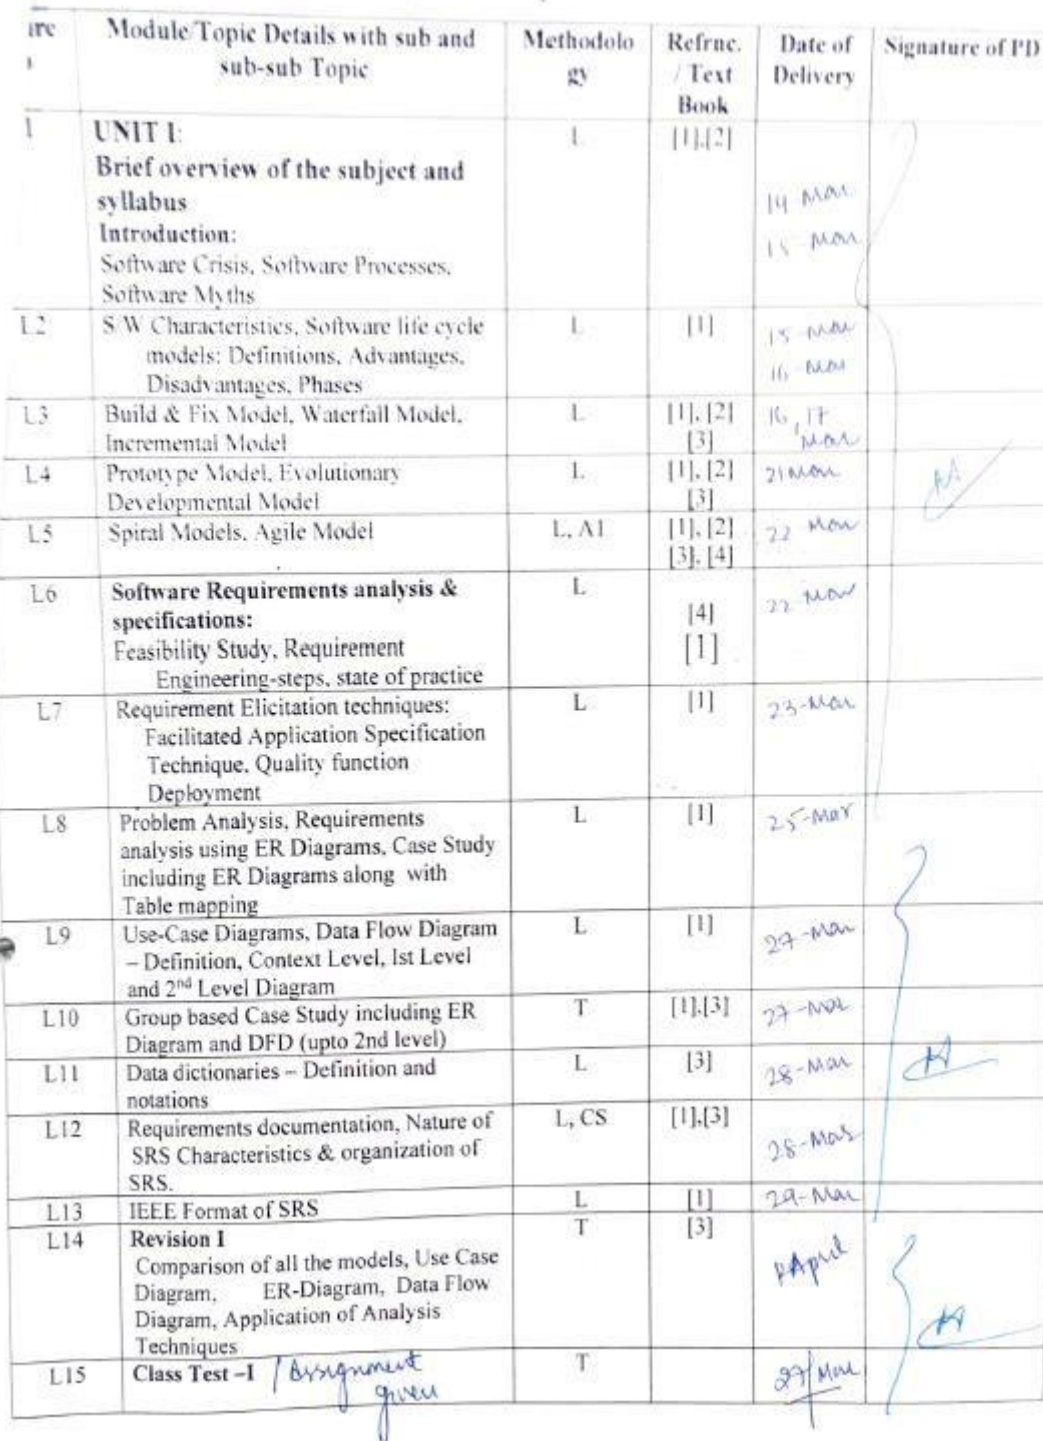 Module/Topic Details with sub and
sub-sub Topic
Methodolo
gy
Refrnc.
/ Text
Book
Date of
Delivery
Signature of PD
UNIT I:
Brief overview of the subject and
syllabus
Introduction:
Software Crisis, Software Processes,
Software Myths
L
[1],[2]
14 Mar
15 Mar
L2
S/W Characteristics, Software life cycle
models: Definitions, Advantages,
Disadvantages, Phases
L
[1]
15 Mar
16 Mar
L3
Build & Fix Model, Waterfall Model,
Incremental Model
L
[1], [2]
[3]
16, 17
Mar
L4
Prototype Model, Evolutionary
Developmental Model
L
[1], [2]
[3]
21 Mar
L5
Spiral Models, Agile Model
L, A1
[1], [2]
[3], [4]
22 Mar
L6
Software Requirements analysis &
specifications:
Feasibility Study, Requirement
Engineering-steps, state of practice
L
[4]
[1]
22 Mar
L7
Requirement Elicitation techniques:
Facilitated Application Specification
Technique, Quality function
Deployment
L
[1]
23-Mar
L8
Problem Analysis, Requirements
analysis using ER Diagrams, Case Study
including ER Diagrams along with
Table mapping
L
[1]
25-Mar
L9
Use-Case Diagrams, Data Flow Diagram
– Definition, Context Level, Ist Level
and 2nd Level Diagram
L
[1]
27-Mar
L10
Group based Case Study including ER
Diagram and DFD (upto 2nd level)
T
[1],[3]
27-Mar
L11
Data dictionaries – Definition and
notations
L
[3]
28-Mar
L12
Requirements documentation, Nature of
SRS Characteristics & organization of
SRS.
L, CS
[1],[3]
28-Mar
L13
IEEE Format of SRS
L
[1]
29-Mar
L14
Revision I
Comparison of all the models, Use Case
Diagram, ER-Diagram, Data Flow
Diagram, Application of Analysis
Techniques
T
[3]
April
L15
Class Test –I / Assignment
given
T
27/Mar